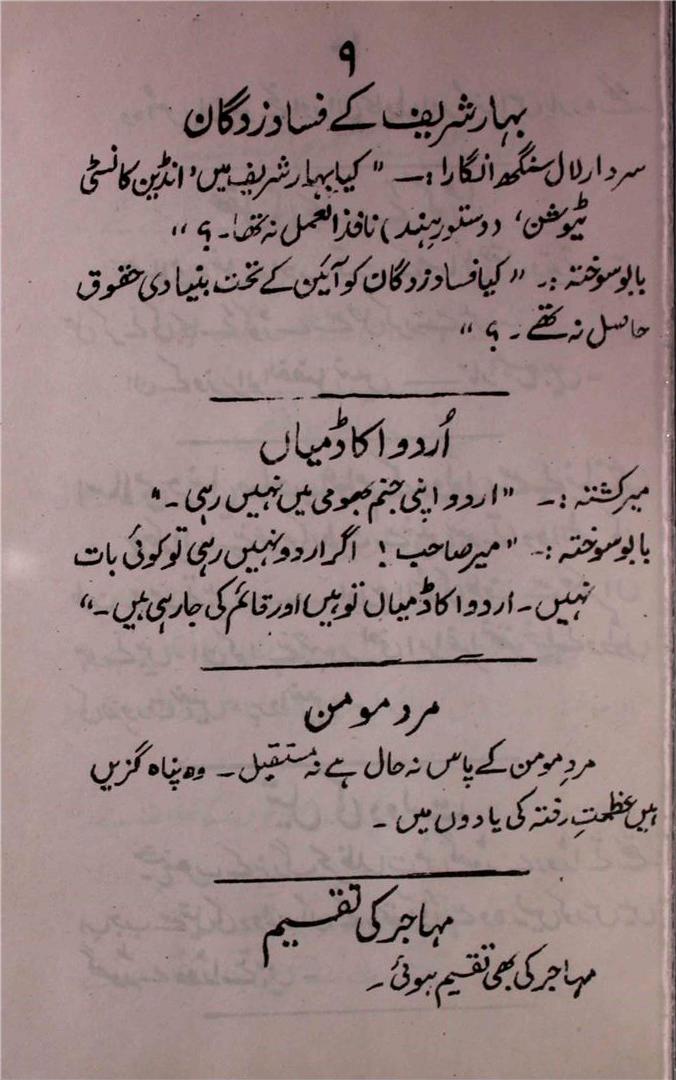 ۹
بہار شریف کے فساد زدگان
سردار لال سنگھ انگارا :۔ "کیا بہار شریف میں 'انڈین کانسٹی
ٹیوشن' (دستورِ ہند) نافذ العمل نہ تھا۔ ؟"
بابو سوختہ :۔ "کیا فساد زدگان کو آئین کے تحت بنیادی حقوق
حاصل نہ تھے۔ ؟"
اُردو اکاڈمیاں
میر کشتہ :۔ "اردو اپنی جنم بھومی میں نہیں رہی۔"
بابو سوختہ :۔ "میر صاحب! اگر اردو نہیں رہی تو کوئی بات
نہیں۔ اردو اکاڈمیاں تو ہیں اور قائم کی جا رہی ہیں۔"
مرد مومن
مردِ مومن کے پاس نہ حال ہے نہ مستقبل۔ وہ پناہ گزیں
ہیں عظمتِ رفتہ کی یادوں میں۔
مہاجر کی تقسیم
مہاجر کی بھی تقسیم ہوئی۔